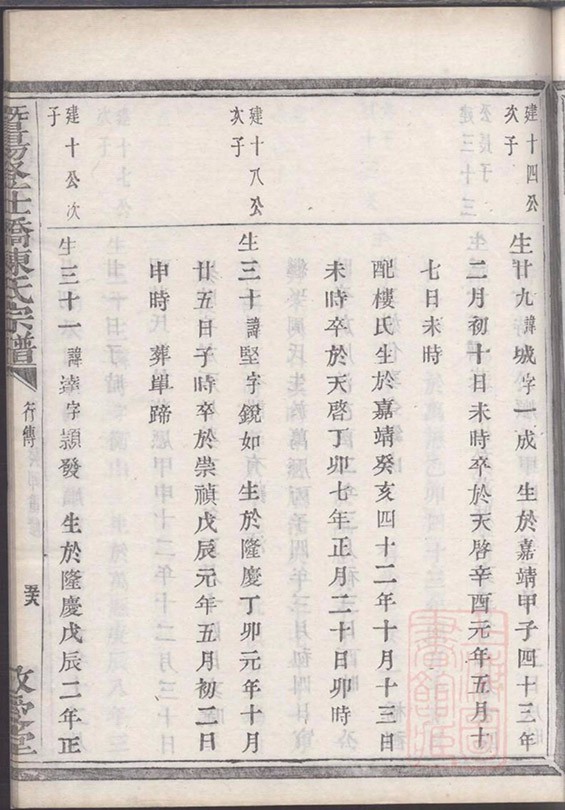 建十四公
次子
生廿九諱城字一成 生於嘉靖甲子四十三年
二月初十日未時卒於天啓辛酉元年五月十
七日未時
配樓氏生於嘉靖癸亥四十二年十月十三日
未時卒於天啓丁卯七年正月二十日卯時
建十八公
次子
生三十諱堅字鋭如 生於隆慶丁卯元年十月
廿五日子時卒於崇禎戊辰元年五月初二日
申時 葬單蹄
建十公次
子
生三十一諱達字顯發 生於隆慶戊辰二年正
暨陽
橋陳氏宗譜
行傳